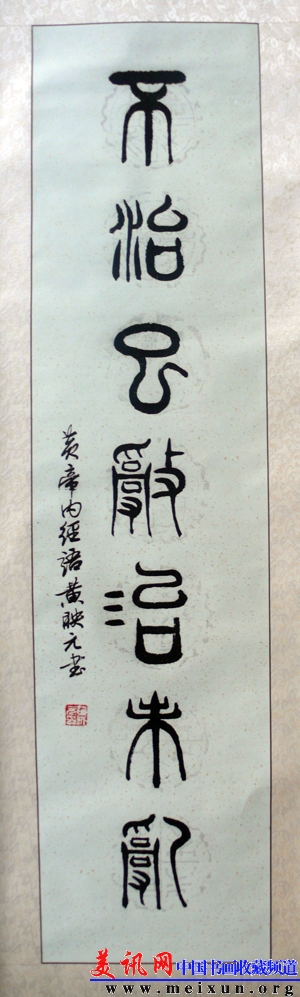 不治已亂治未亂
黄帝内經語黄映元书
美讯网 中国书画收藏频道
www.meixun.org